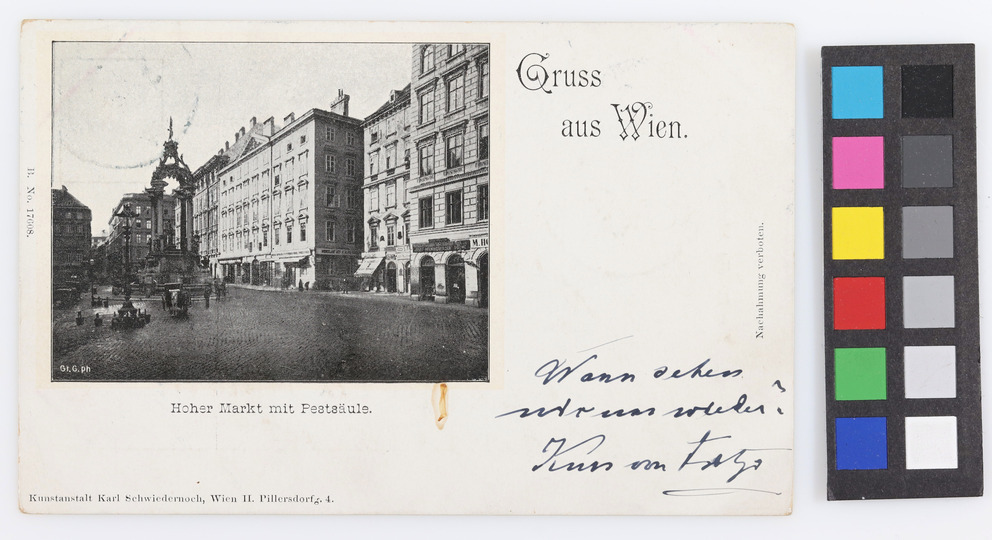 Gruss
aus Wien.
B. No. 17608.
M. HO
Gt. G. ph
Nachahmung verboten.
Wann sehen
wir uns wieder?
Kuss von
Hoher Markt mit Pestsäule.
Kunstanstalt Karl Schwiedernoch, Wien II. Pillersdorfg. 4.